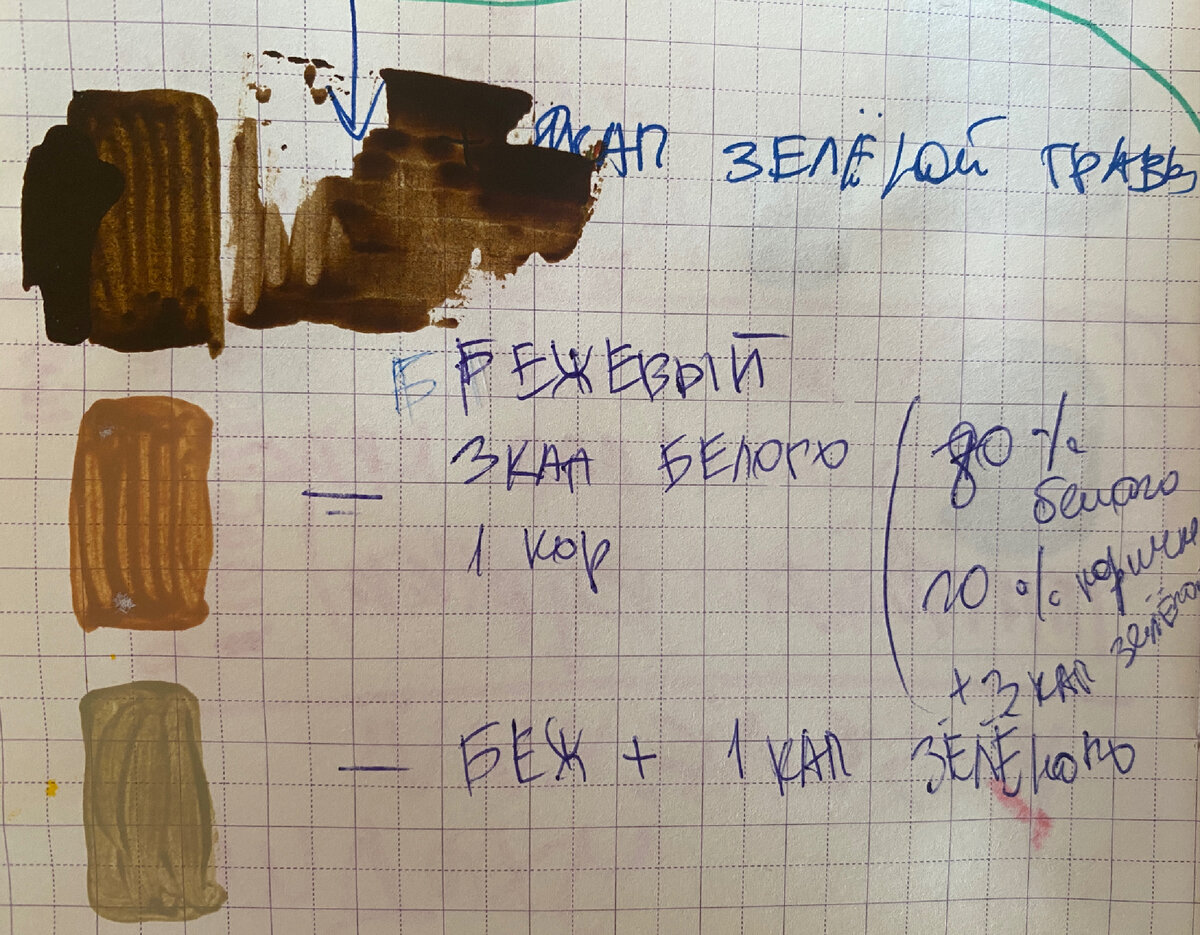 КАП ЗЕЛЁНОЙ ТРАВЫ
Б БЕЖЕВЫЙ
3 КАП БЕЛОГО
1 КОР
80 %
белого
20 % коричн
зелёного
+ 3 КАП
— БЕЖ + 1 КАП ЗЕЛЁНОГО